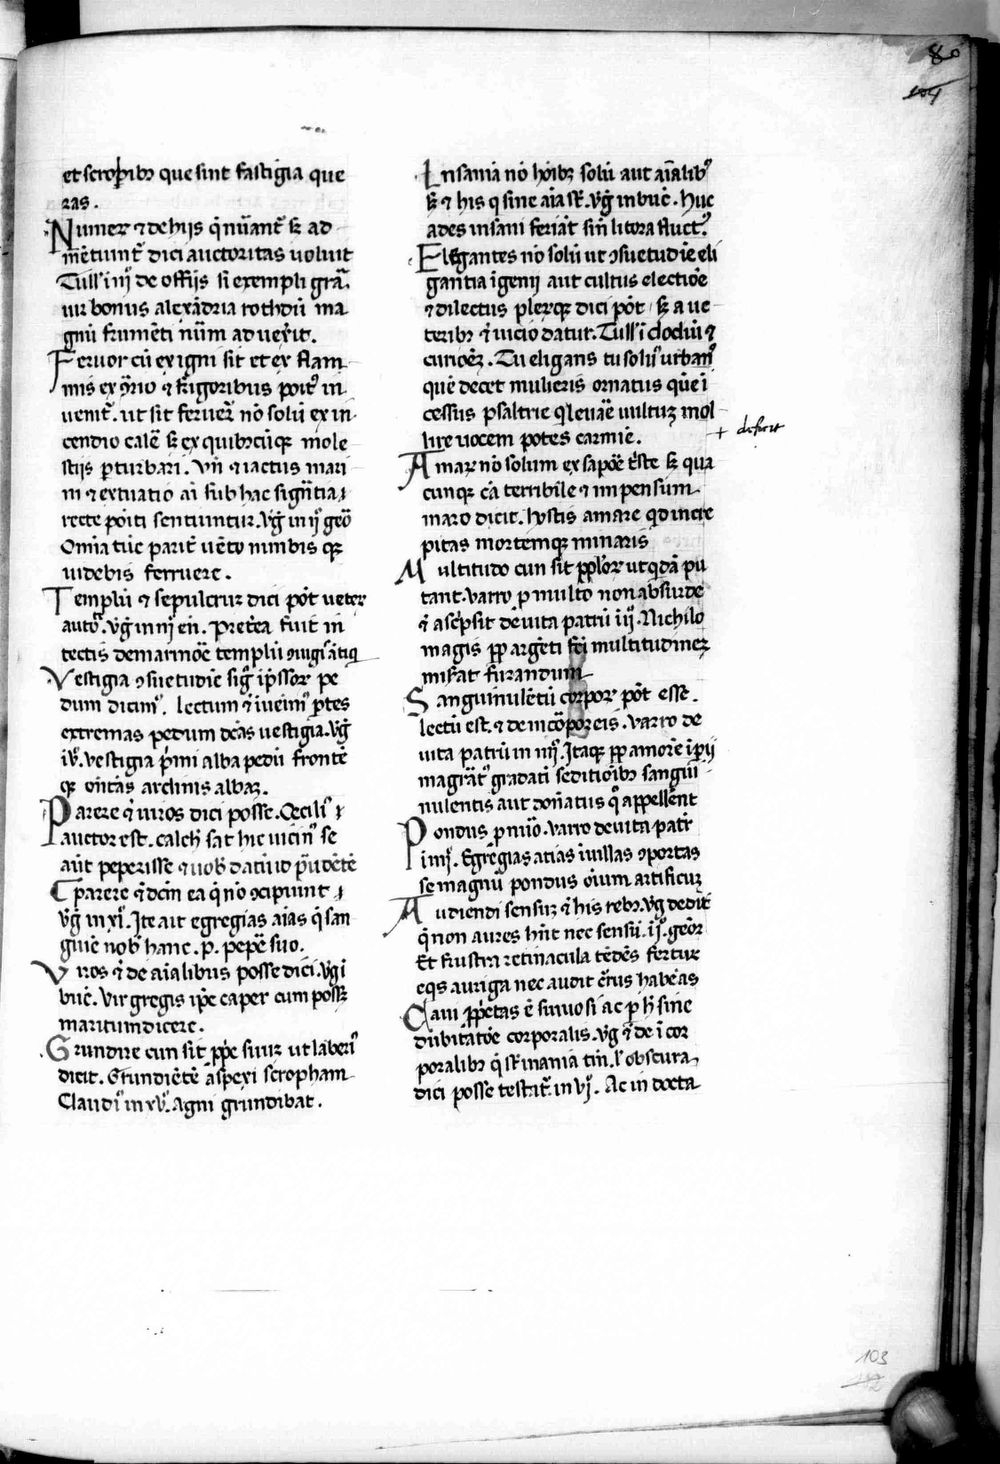 80
104
et scrobibꝫ que sint fastigia que
ras.
Numerꝰ ⁊ de hijs q̄ nūant̄ sꝫ ad
mētiunt̄ dici auctoritas uoluit
Tullꝰ iijº de offijs si exempli grā.
uir bonus alexādria rothdū ma
gnū frumēti nūm aduexit.
Feruor cū ex igni sit et ex flam
mis ex ⁊ frigoribus inuenit̄. ut sit feruerꝰ nō solū ex in
cendio calē sꝫ ex quibꝫcūqꝫ mole
stijs ꝑturbari. Vn̄ ⁊ iactus mari
ni ⁊ extuatio aī sub hac
recte sentiuntur. vḡ in ijº geō
Omīa tūc parit̄ uēto nimbis qꝫ
uidebis feruere.
Templū ⁊ sepulcruꝫ dici pōt ueter
autō. vḡ in iiij en̄. Preteā fuit in
tectis de marmoē templū ꝯiugꝭ ātiq
Vestigia ꝯsuetudīe pe
dum dicimꝰ. lectum ⁊ p̄tes
extremas pedum vestigia. vḡ
vº. vestigia p̄mi alba pedū frontē
qꝫ ostentās arduus albaꝫ.
Parere ⁊ uiros dici posse. Cecilꝰ
auctor est. calch sat hic uicinꝰ se
aūt peperisse ⁊ uobꝭ datū
parere ea q̄ nō ꝯcipiunt
vḡ in xjº. Ite ait egregias aīas q̄ san
guīe nobꝭ hanc .p. pepē suo.
Viros ⁊ de aīalibus posse dici. vgi
buc̄. vir gregis ip̄e caper cum possꝫ
maritum dicere.
Grundire cum sit ꝓp̄e suuꝫ ut laberiꝰ
dicit. Grundiētē āspexi scropham
Claudiꝰ in xvº. Agni grundibat.
Insania nō hōibꝫ solū aut aīalibꝰ
sꝫ ⁊ his q sine aīa sūt. vḡ in buc̄. Huc
ades insani feriāt sin̄ litora fluctꝰ.
Elegantes nō solū ut ꝯsuetudīe eli
gantia īgenij aut cultus electiōe
⁊ dilectus plerqꝫ dici pōt sꝫ a ue
teribꝫ ⁊ uicio datur. Tullꝰ ī clodiū ⁊
curiōeꝫ. Tu eligans tu solꝰ urbanꝰ
quē decet mulieris ornatus quē ī
cessus psaltrie q leuāē uultuꝫ mol
lire uocem potes carmīe.
+ deficit
Amarꝫ nō solum ex sapōe t̄ste sꝫ qua
cunqꝫ cā terribile ⁊ impensum
maro dicit. hostis amare qd incre
pitas mortemqꝫ minaris
Multitudo cum sit ꝓplorꝫ ut qdā pu
tant. varro ꝑ multo non absurde
⁊ de uita patrū iijº. Nichilo
magis ꝓp argēti fcī multitudineꝫ
misrat furandum
Sanguinulētū corporꝫ pōt esse.
lectū est. ⁊ de incōporeis. varro de
uita patrū in iiijº. Itaqꝫ ꝓp amorē
magrāt̄ gradatī seditiōibꝫ sangui
nulentis aut donatus q̄ appellent
Pondus ꝑ nūō. varro de uita patr̄
iiijº. Egregias ꝯportas
se magnū pondus oīum artificuꝫ
Audiendi sensuꝫ ⁊ his rebꝫ. vg dedit̄
q̄ non aures hn̄t nec sensū. ijº. geōr
Et frustra retinacula tēdēs fertur
eqs auriga nec audit c̄rus habēas
Caui ꝓp̄etas ē sinuosi ac ꝑ hꝭ sine
dubitatōe corporalis. vg ⁊ de ī cor
poralibꝫ q̄ sūt inania tn̄. lꝰ obscura
dici posse testat̄ in vj. Ac in docta
103